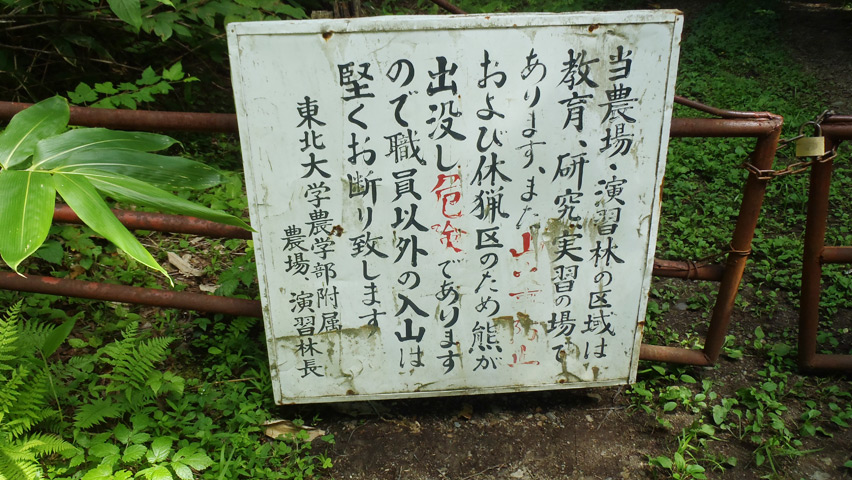 当農場・演習林の区域は
教育、研究実習の場で
あります、また山 止
および休猟区のため熊が
出没し危険であります
ので職員以外の入山は
堅くお断り致します
東北大学農学部附属
農場 演習林長